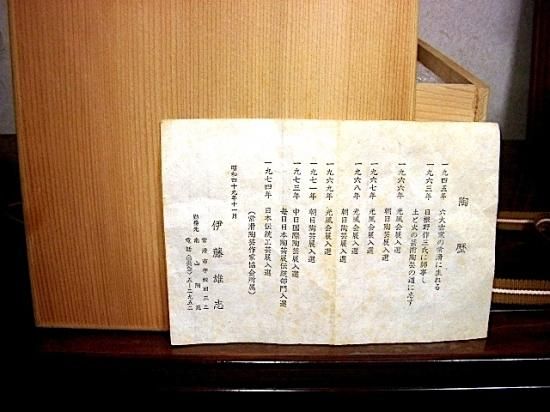 陶歴
一九四五年 六大古窯の常滑に生れる
一九六三年
土と火の芸術陶芸の道に志す
一九六六年 光風会展入選
朝日陶芸展入選
一九六七年 光風会展入選
一九六八年 光風会展入選
朝日陶芸展入選
一九六九年 光風会展入選
一九七一年 朝日陶芸展入選
一九七三年 中日国際陶芸展入選
毎日日本陶芸展伝統部門入選
一九七四年 日本伝統工芸展入選
(常滑陶芸作家協会所属)
昭和四十九年十一月
伊藤雄志
常滑市字
勤務先
電話